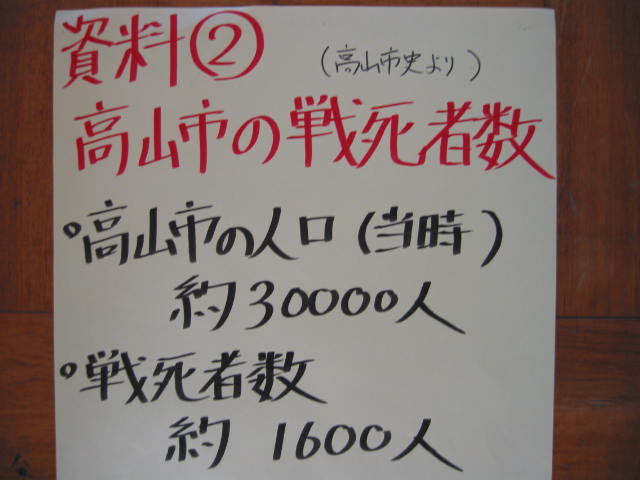 資料② (高山市史より)
高山市の戦死者数
°高山市の人口(当時)
約30000人
°戦死者数
約 1600人